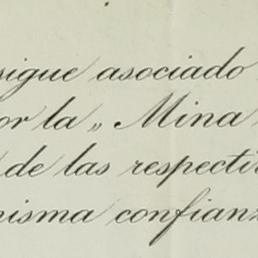 sigue asociado
or la „ Mina
de las respecti
misma confianz